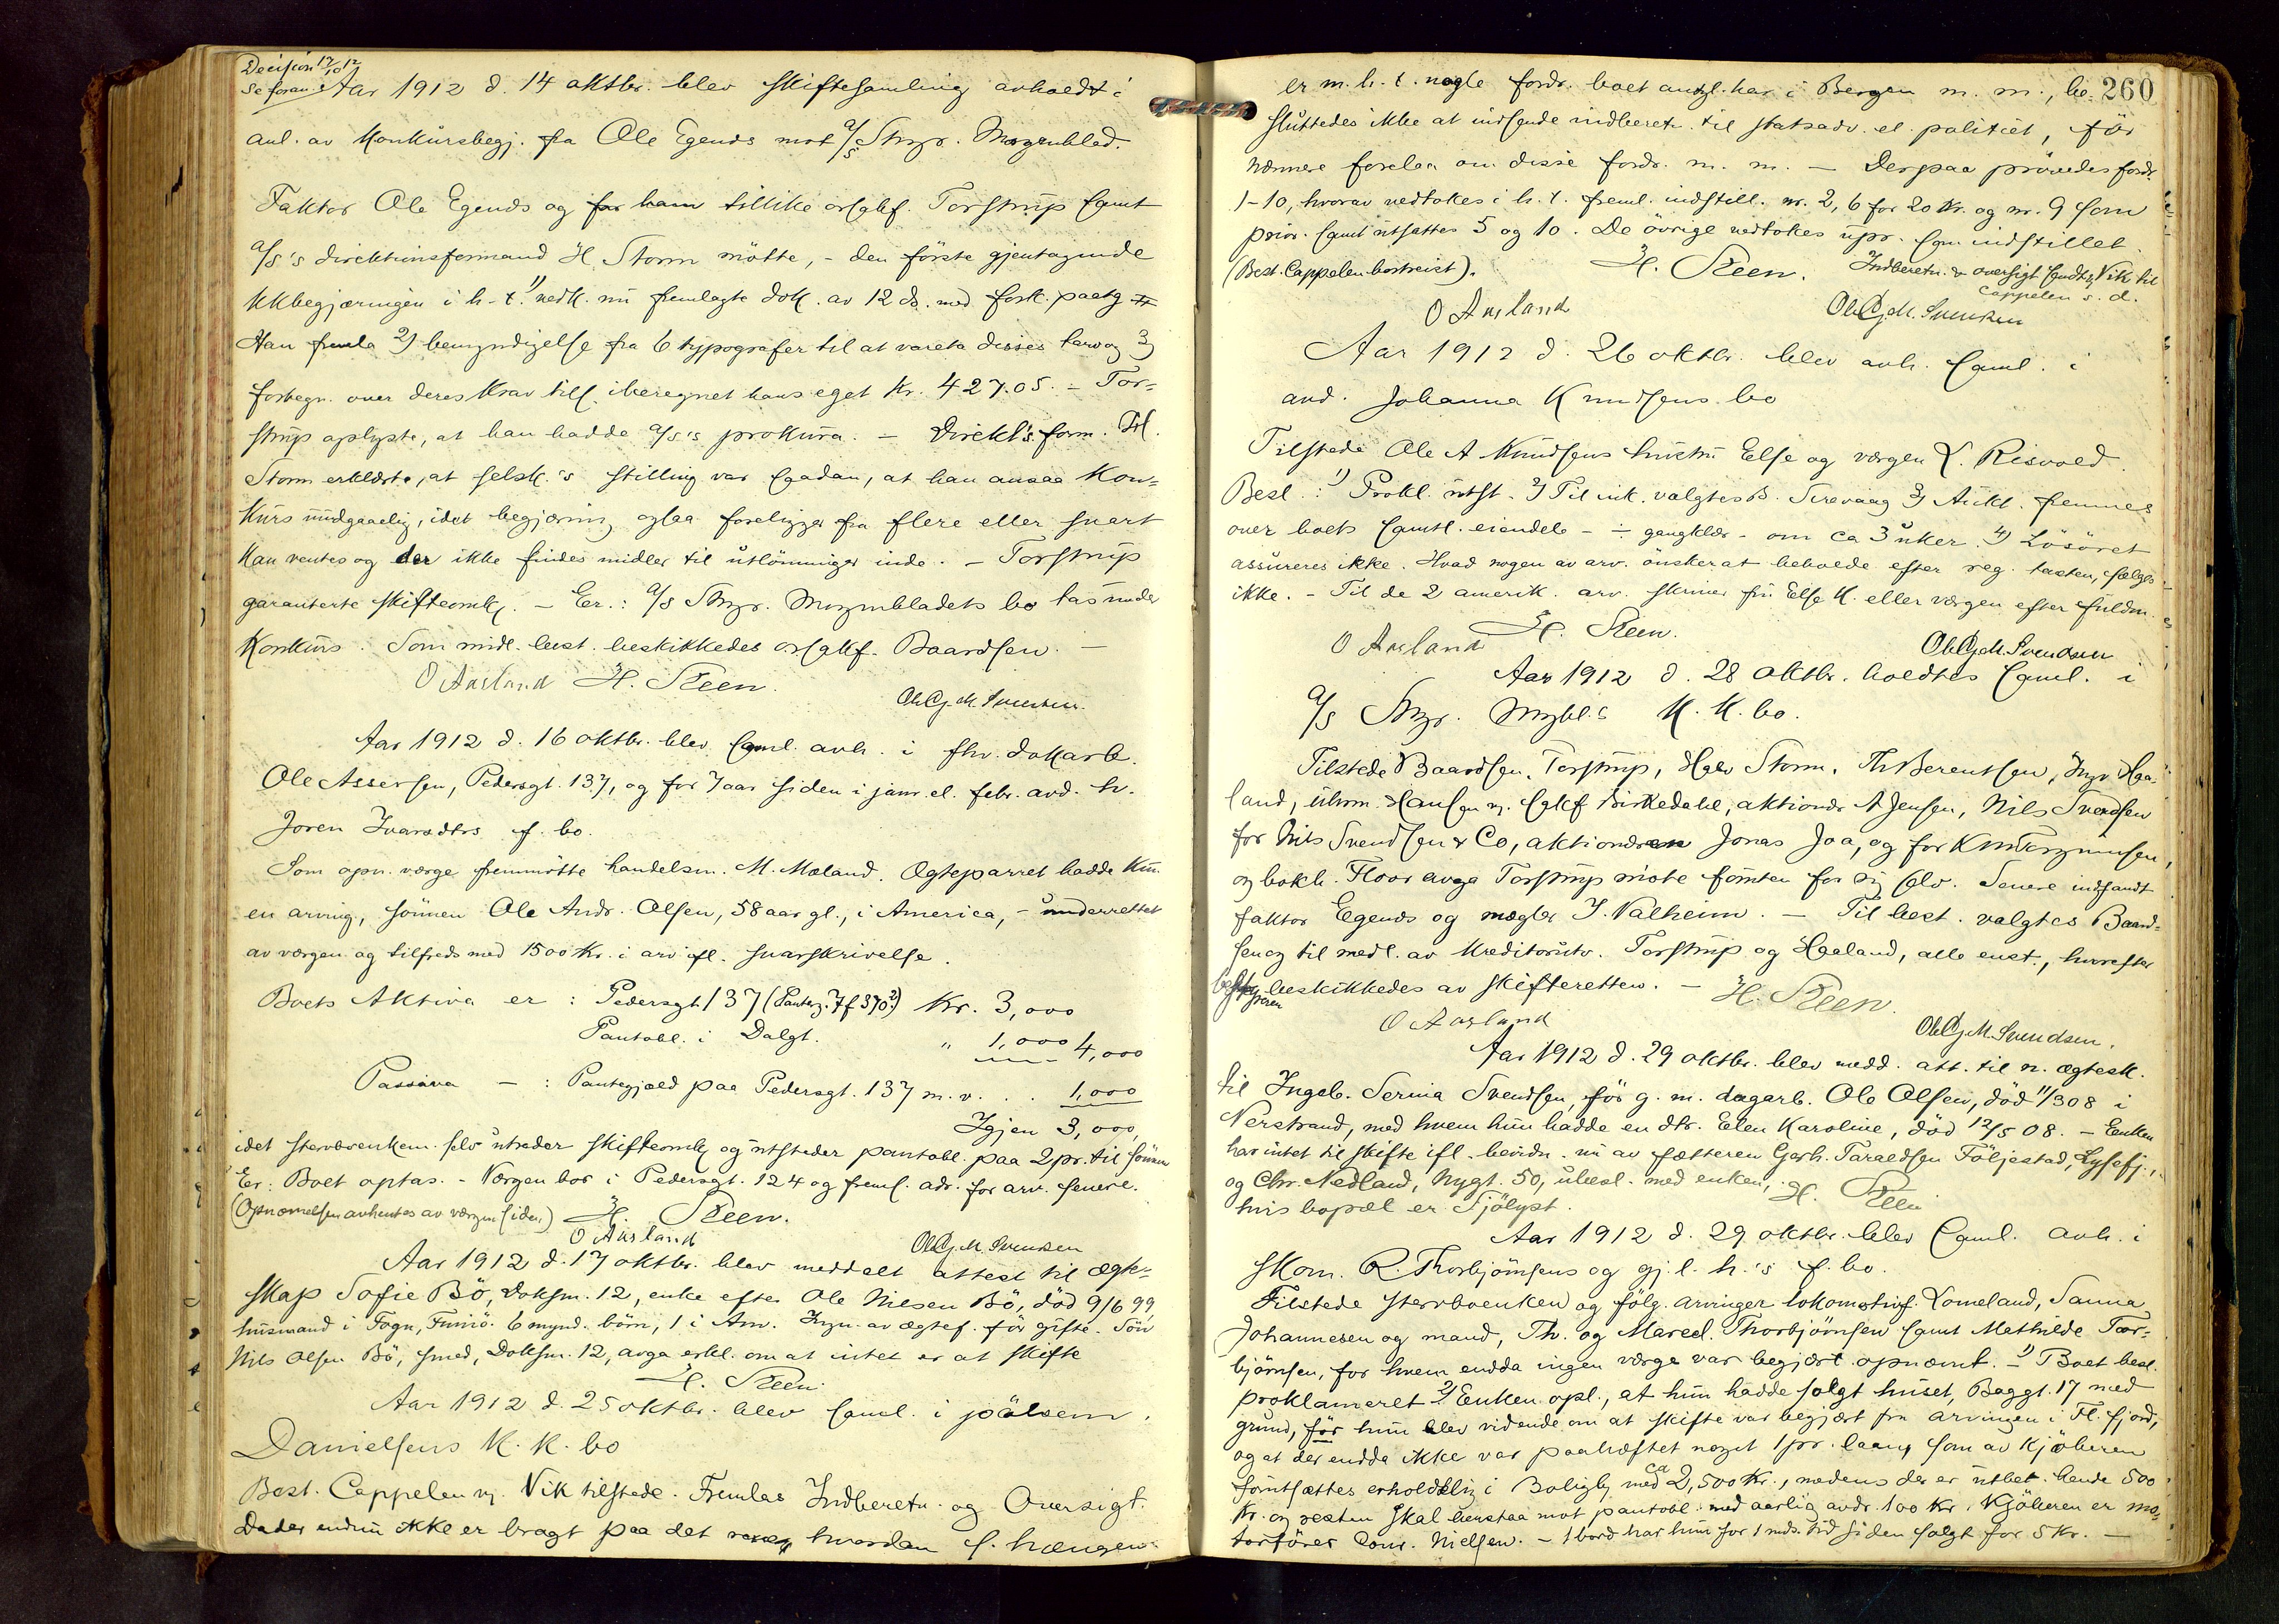 Decision 17/10 12
Se foran
Aar 1912 d. 14 oktbr. blev skiftesamling avholdt i
anl. av Konkursbegj. fra Ole Egends mot a/s Stvgr. Morgenblad.
Faktor Ole Egends og for ham tillike orsakf. Torstrup samt
a/s's direktionsformand H. Storm mötte, - den förste gjentagende
KKbegjæringen i h. t. 1) vedk. nu fremlagte dok. av 12 ds. med forsk. paategn
Han fremla 2) bemyndigelse fra 6 typografer til at vareta disses tarv og 3)
fortegn. over deres Krav till. iberegnet hans eget Kr. 427.05. - Tor=
strup oplyste, at han hadde a/s's prokura. - Direkt's form. H.
Storm erklærte, at selsk.'s stilling var saadan, at han ansaa Kon=
Kurs undgaaelig, idet begjæring ogsaa foreligger fra flere eller snart
Kan ventes og der ikke findes midler til utlönninger inde. - Torstrup
garanterte skifteomk. - Er.: a/s Stvgr. Morgenbladets bo tas under
Konkurs. Som midl. best. beskikkedes orsakf. Baardsen. -
O Aarland H. Steen.
Ole G. M. Svendsen.
Aar 1912 d. 16 oktbr. blev saml. avh. i fhv. dokarb.
Ole Assersen, Pedersgt. 137, og for 7 aar siden i janr. el. febr. avd. h.
Joren Ivarsdtrs f. bo.
Som opn. værge fremmötte handelsm. M. Maland. Ægteparret hadde Kun
en arving, sönnen Ole Andr. Olsen, 58 aar gl., i America, - underrettet
av værgen og tilfreds med 1500 Kr. i arv ifl. svarskrivelse.
Boets Aktiva er: Pedersgt 137 (Panteg. 7 f 370 2) Kr. 3,000
Pantobl. i Dalgt. " 1,000 4,000
Passiva - : Pantegjæld paa Pedersgt. 137 m. v. . . 1,000
Igjen 3,000,
idet stervboenken selv utreder skifteomk og utsteder pantobl. paa 2 pr. til sönnen
Er: Boet optas. - Værgen bor i Pedersgt. 124 og frems. adr. for arv. senere.
(Opnævnelsen avhentes av værgen siden) H. Steen.
O Aarland
Ole G. M. Svendsen
Aar 1912 d. 17 oktbr. blev meddelt attest til ægte=
skap Sofie Bö, Doksm. 12, enke efter Ole Nilsen Bö, död 9/6 99,
husmand i Fogn, Finnö. 6 mynd. börn, 1 i Am. Ingn. av ægtef. för gifte. Sön
Nils Olsen Bö, smed, Doksm. 12, avga erkl. om at intet er at skifte
H. Steen
Aar 1912 d. 25 oktbr. blev saml. i
Danielsens K. K. bo
Best. Cappelen v. Vik tilstede. Fremlas Indberetn. og Oversigt.
Da der endnu ikke er bragt paa det rene, hvordan s. hængen
260
er m. h. t. nogle fordr. boet angl. har i Bergen m. m., be=
sluttedes ikke at indsende indberetn. til statsadv. el. politiet, för
nærmere forelaa om disse fordr. m. m. - Derpaa prövedes fordr.
1-10, hvorav vedtokes i h. t. freml. indstill. nr. 2, 6 for 20 Kr. og nr. 9 som
prior. samt utsattes 5 og 10. De övrige vedtokes upr. som indstillet.
(Best. Cappelen bortreist). H. Steen. Indberetn. & oversigt sendtes Vik til
Cappelen s. d.
O Aarland
Ole G. M. Svendsen
Aar 1912 d. 26 oktbr. blev avh. saml. i
avd. Johanna Knudsens bo
Tilstede Ole A Knudsens hustru Else og værgen L. Risvold.
Besl.: 1) Prokl. utst. 2) Til ink. valgtes B. Sirevaag 3) Aukt. fremmes
over boets samtl. eiendele - ÷ gangklær - om ca 3 uker. 4) Lösöret
assureres ikke. Hvad nogen av arv. önsker at beholde efter reg. taksten, sælges
ikke. - Til de 2 amerik. arv. skriver fru Else K. eller værgen efter fuldm.
O Aarland H. Steen.
Ole G. M. Svendsen
Aar 1912 d. 28 oktbr. holdtes saml. i
a/s Stvgr. Mrgbl.s K. K. bo.
Tilstede Baardsen, Torstrup, Halv Storm, Th Berentsen, Ingv. Haa=
land, uhrm. Hansen v. sakf Birkedahl, aktionær A Jensen, Nils Svendsen
for Nils Svendsen & Co, aktionæren Jonas Joa, og for Knut Torgumsen,
og bokh. Floor avga Torstrup möte foruten for sig selv. Senere indfandt
faktor Egends og mægler J. Valheim. - Til best. valgtes Baard=
sen og til medl. av Kreditorutv. Torstrup og Haaland, alle enst., hvorefter
bestyreren beskikkedes av skifteretten. - H. Steen.
O Aarland
Ole G. M. Svendsen.
Aar 1912 d. 29 oktbr. blev medd. att. til n. ægtesk.
til Ingeb. Serina Svendsen, för g. m. dagarb. Ole Olsen, död 11/3 08 i
Nerstrand, med hvem hun hadde en dtr. Elen Karoline, död 12/5 08. - Enken
har intet til skifte ifl. bevidn. nu av fætteren Gerh. Taraldsen Följestad, Lysefj.,
og Chr. Nedland, Nygt. 50, ubesl. med enken, H. Steen
hvis bopæl er Sjölyst.
Aar 1912 d. 29 oktbr. blev saml. avh. i
skom. R. Thorbjörnsens og gj. l. h.'s f. bo.
Tilstede stervboenken og fölg. arvinger lokomotivf. Lomeland, Sanna
Johannesen og mand, Th. og Marcel. Thorbjörnsen samt Mathilde Tor=
björnsen, for hvem endda ingen værge var begjært opnævnt. - 1) Boet besl.
proklameret 2) Enken opl., at hun hadde solgt huset, Baggt. 17 med
grund, för hun blev vidende om at skifte var begjært fra arvingen i Fl. fjord,
og at der endda ikke var paaheftet noget 1 pr. laan, som av Kjöberen
forutsættes erholdelig i Boligb. med ca 2,500 Kr., medens der er utbet. hende 500
Kr. og resten skal henstaa mot pantobl. med aarlig avdr. 100 Kr. Kjöberen er mo=
torförer Conr. Nielsen. - 1 bord har hun for 1 mds. tid siden solgt for 5 Kr. -